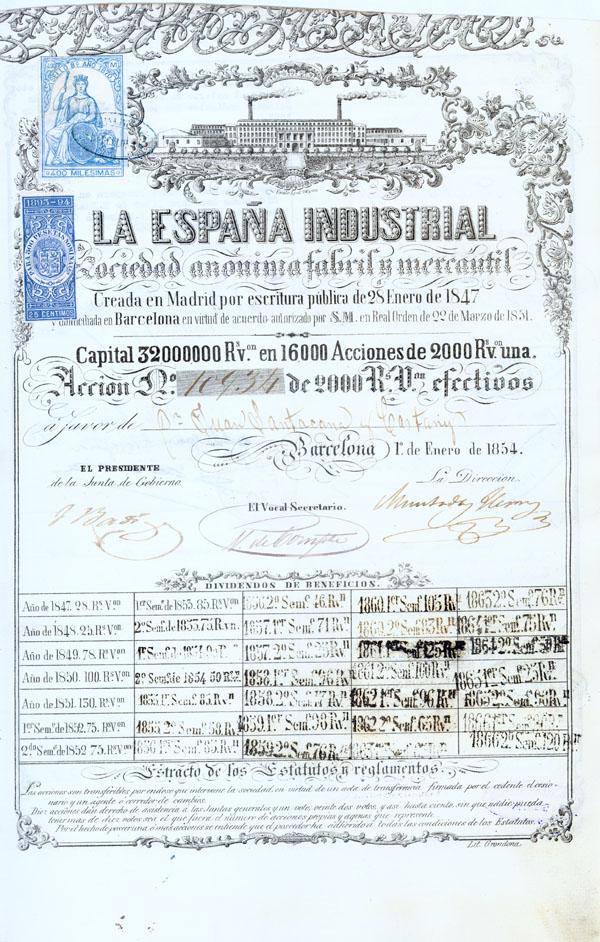 SELLO 8º AÑO 1870
400 MILESIMAS
1893-94
25 CENTIMOS
LA ESPAÑA INDUSTRIAL
Sociedad anónima fabril y mercantil
Creada en Madrid por escritura pública de 28 Enero de 1847
y domiciliada en Barcelona en virtud de acuerdo autorizado por S.M. en Real Orden de 22 de Marzo de 1851.
Capital 32000000 Rs. von en 16000 Acciones de 2000 Rs. von una.
Accion No. 10934 de 2000 R. Von efectivos
á favor de Dn Juan Santacana y
Barcelona 1º de Enero de 1854.
EL PRESIDENTE
de la Junta de Gobierno.
El Vocal Secretario.
La Direccion.
DIVIDENDOS DE BENEFICION.
Año de 1847. 28. Rs. Von 1er Sem.e de 1853. 85. Rs. Von 1856. 2º Seme. 46. Rvn 1860. 1er Seme. 105 Rvn 1863 2º Seme. 76 Rvn
Año de 1848. 25. Rs. Von 2º Sem.e de 1853. 73. R.vn. 1857. 1er Seme. 71 Rvn 1860 2º Seme. 83 Rvn 1864 1er Seme. 75 Rvn
Año de 1849. 78. Rs. Von 1857. 2º Seme. 1861 1er Seme. 125 Rvn 1864 2º Seme. 50
Año de 1850. 100. Rs. Von 2º Seme. de 1854 50 1858. 1er Seme. 1861 2º Seme. 100 Rvn 1865 1er Seme. 25 Rvn
Año de 1851. 130. Rs. Von 1855. 1er Seme. 83. Rvn 1858. 2º Seme. 47 Rvn 1862 1er Seme. 96 Rvn 1865 2º Seme. 68 Rvn
1er Sem.e de 1852. 75. Rs. Von 1855 2º Seme. 58. Rvn 1859. 1er Seme. 98 Rvn 1862 2º Seme. 65 Rvn 1866 1er Seme.
2do Sem.e de 1852 75. Rs. Von 1856 1er Seme. 1859 2º Seme. 76 Rvn 1866 2º Seme. 120 Rvn
Estracto de los Estatutos y reglamentos.
Las acciones son transferibles por endoso que interviene la sociedad, en virtud de un acta de transferencia firmada por el cedente el cesio-
nario y un agente ó corredor de cambios.
Diez acciones dan derecho de asistencia a las Juntas generales y un voto; veinte dos votos, y así hasta ciento, sin que nadie pueda
tener mas de diez votos sea el que fuere el número de acciones propias y agenas que represente.
Por el hecho de poseer una ó mas acciones se entiende que el poseedor ha adherido á todas las condiciones de los Estatutos.
Lit. Grondona.